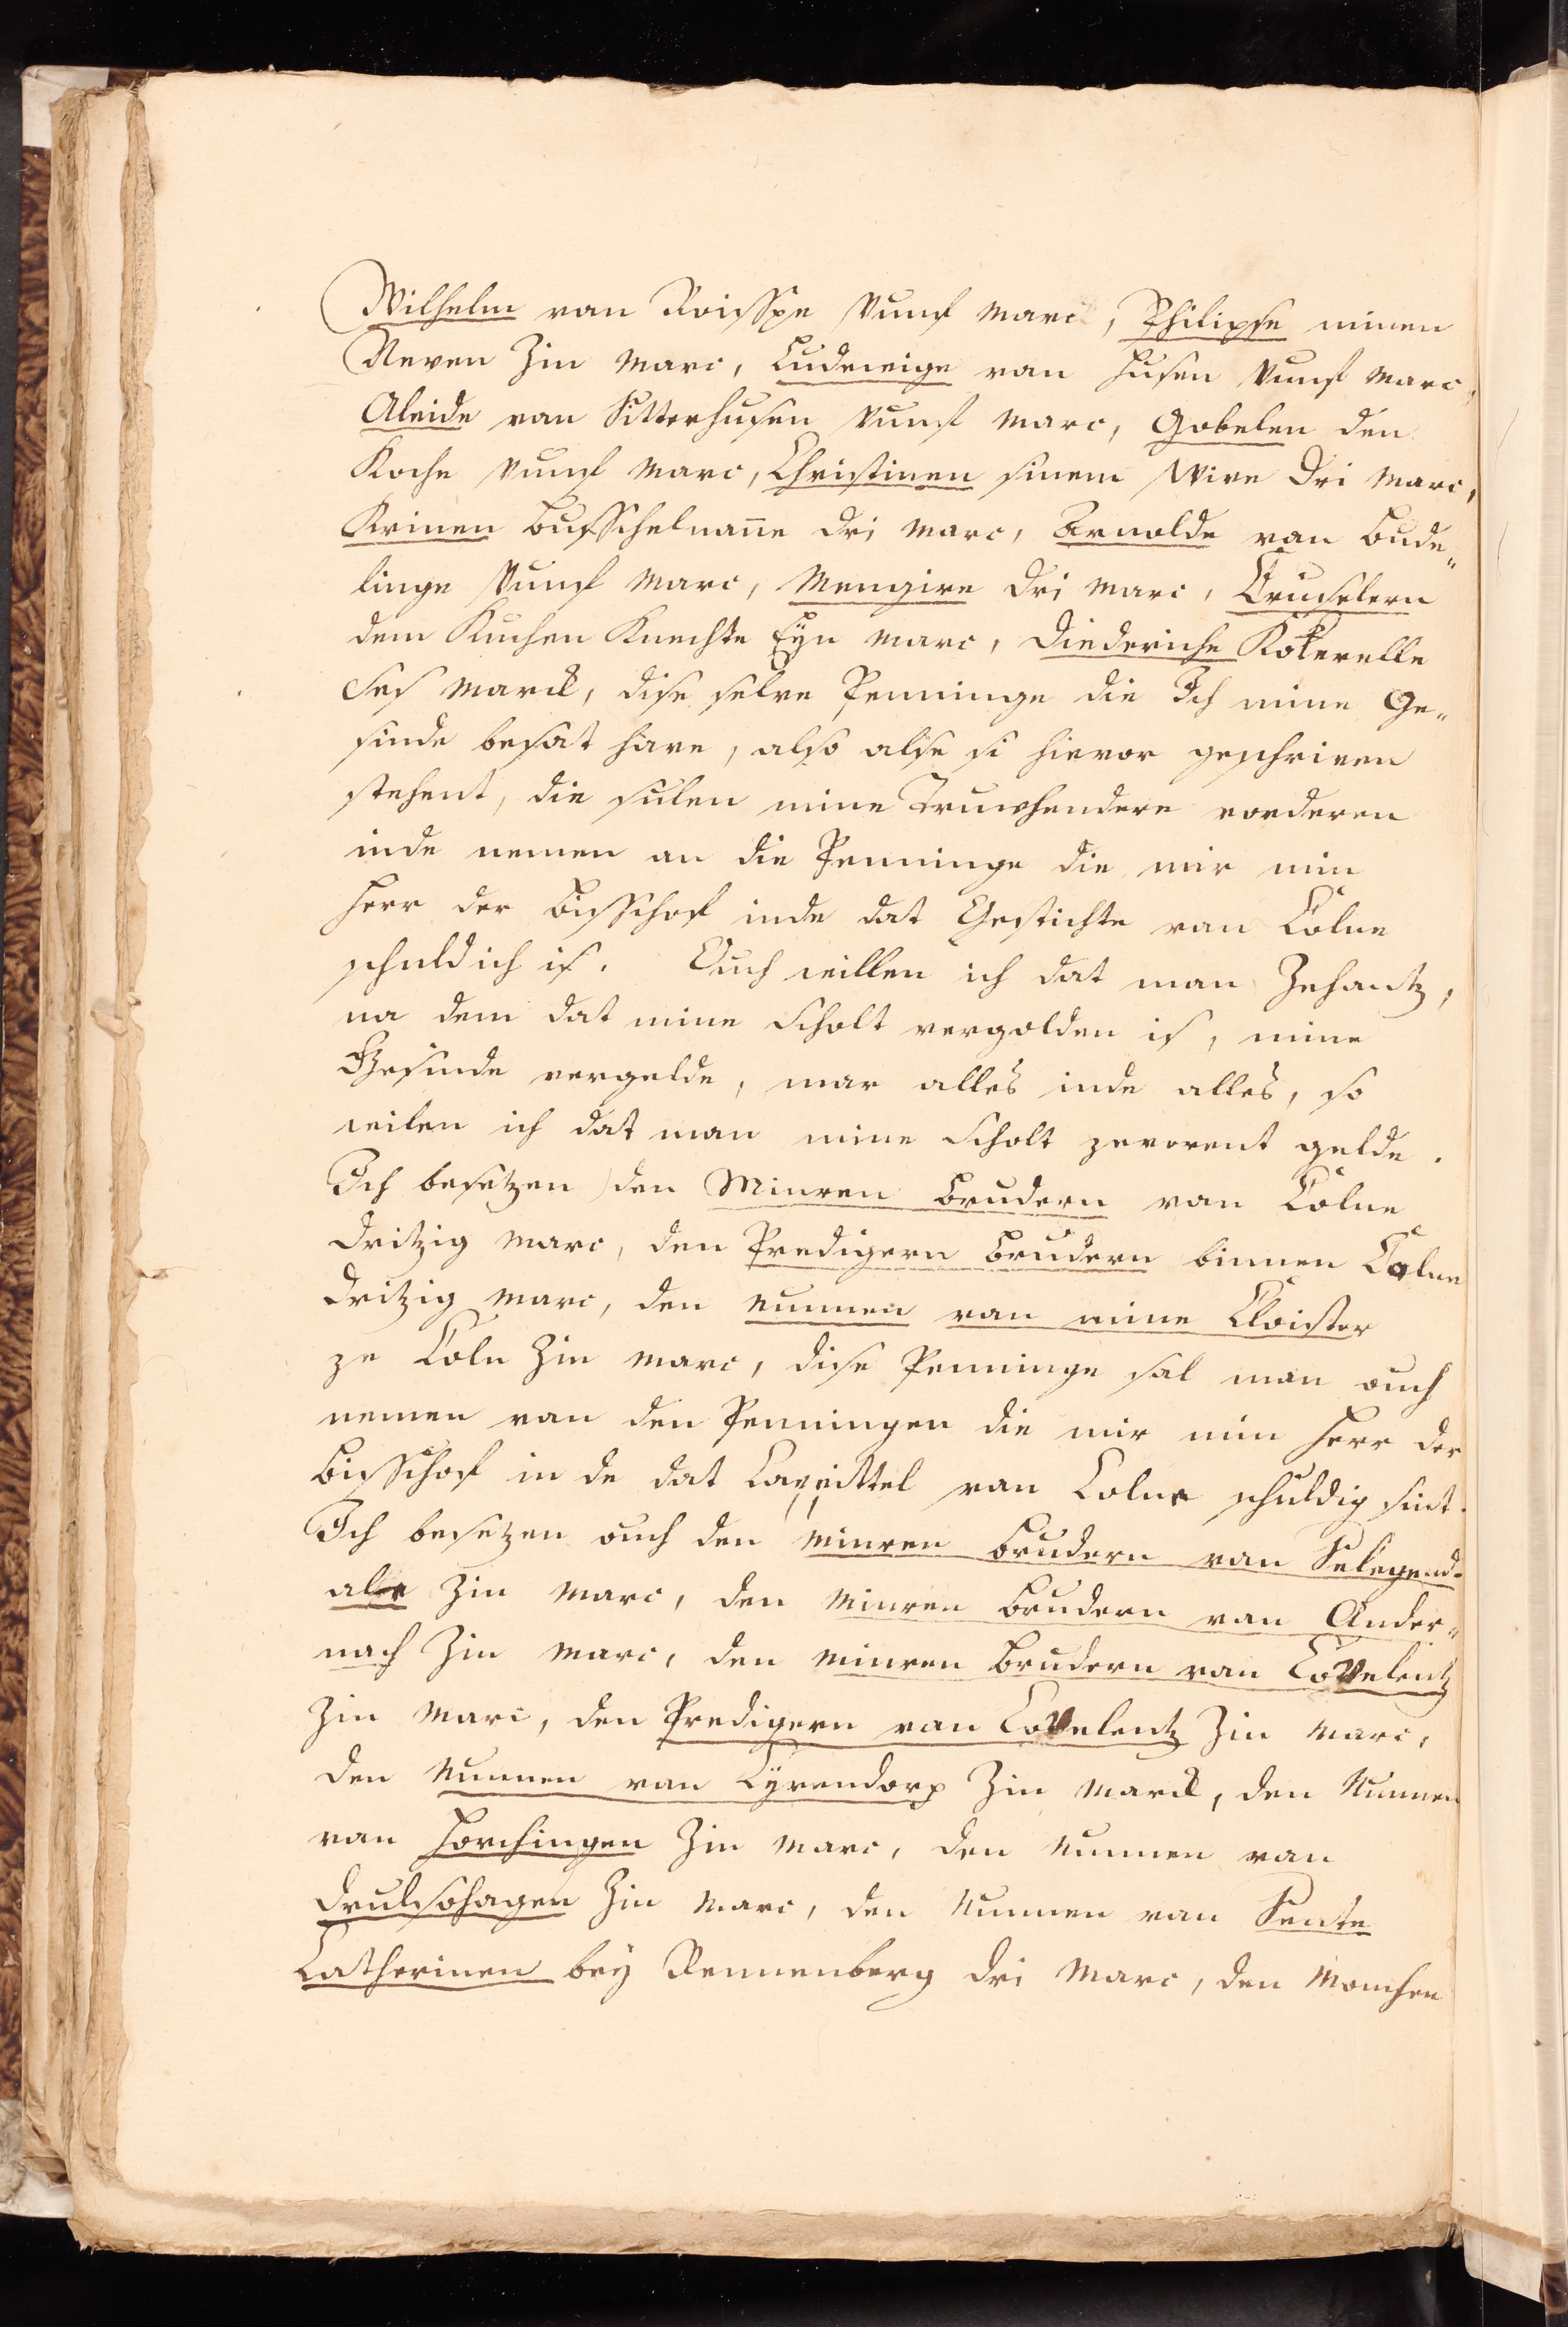 Wilhelm van Roisspe Vunf marc, Philipse minen
Neven Zin marc, Ludewige van Husen Vunf marc,
Aleide van Sitterhusen Vunf marc, Gobelen den
Koche Vunf marc, Christinen sinem Wive dri marc,
Krinen Busschelmanne dri marc, Arnolde van Bude„
linge Vunf marc, Mengire dri marc, Cruselern
dem Kuchen Knechte Eyn marc, Diederiche Koterelle
Ses marck, dise selve Penninge die Ich mine Ge„
sinde besat have, also alse si hievor geschriven
stehent, die sulen mine Truwhendere vorderen
inde nemen an die Penninge die mir min
Herr der Bisschof inde dat Gestichte van Colne
schuldich is. Ouch willen ich dat man Zehantz,
na dem dat mine Scholt vergolden is, mine
Gesinde vergelde, mar alles inde alles, so
wilen ich dat man mine Scholt zevorent gelde.
Ich besetzen den Minren Brudern van Colne
dritzig marc, den Predigern Brudern binnen Colne
dritzig marc, den Nunnen van mine Cloister
ze Coln Zin marc, dise Penninge sal man ouch
nemen van den Penningen die mir min Herr der
Bisschof in de dat Capittel van Colne schuldig sint.
Ich besetzen ouch den Minren Brudern van Selegend-
ale Zin marc, den Minren Brudern van Ander„
nach Zin marc, den Minren Brudern van Covelentz
Zin marc, den Predigern van Covelentz Zin marc,
den Nunnen van Cyrendorp Zin marck, den Nunnen
van Horchingen Zin marc, den Nunnen van
Drulsohagen Zin marc, den Nunnen van Sente
Catherinen bey Rennenberg dri Marc, den Monchen